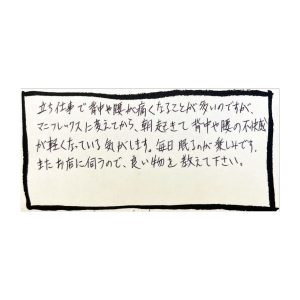 立ち仕事で背中や腰が痛くなることが多いのですが、
マニフレックスに変えてから、朝起きて背中や腰の不快感
が軽くなっている気がします。毎日眠るのが楽しみです。
またお店に伺うので、良い物を教えて下さい。